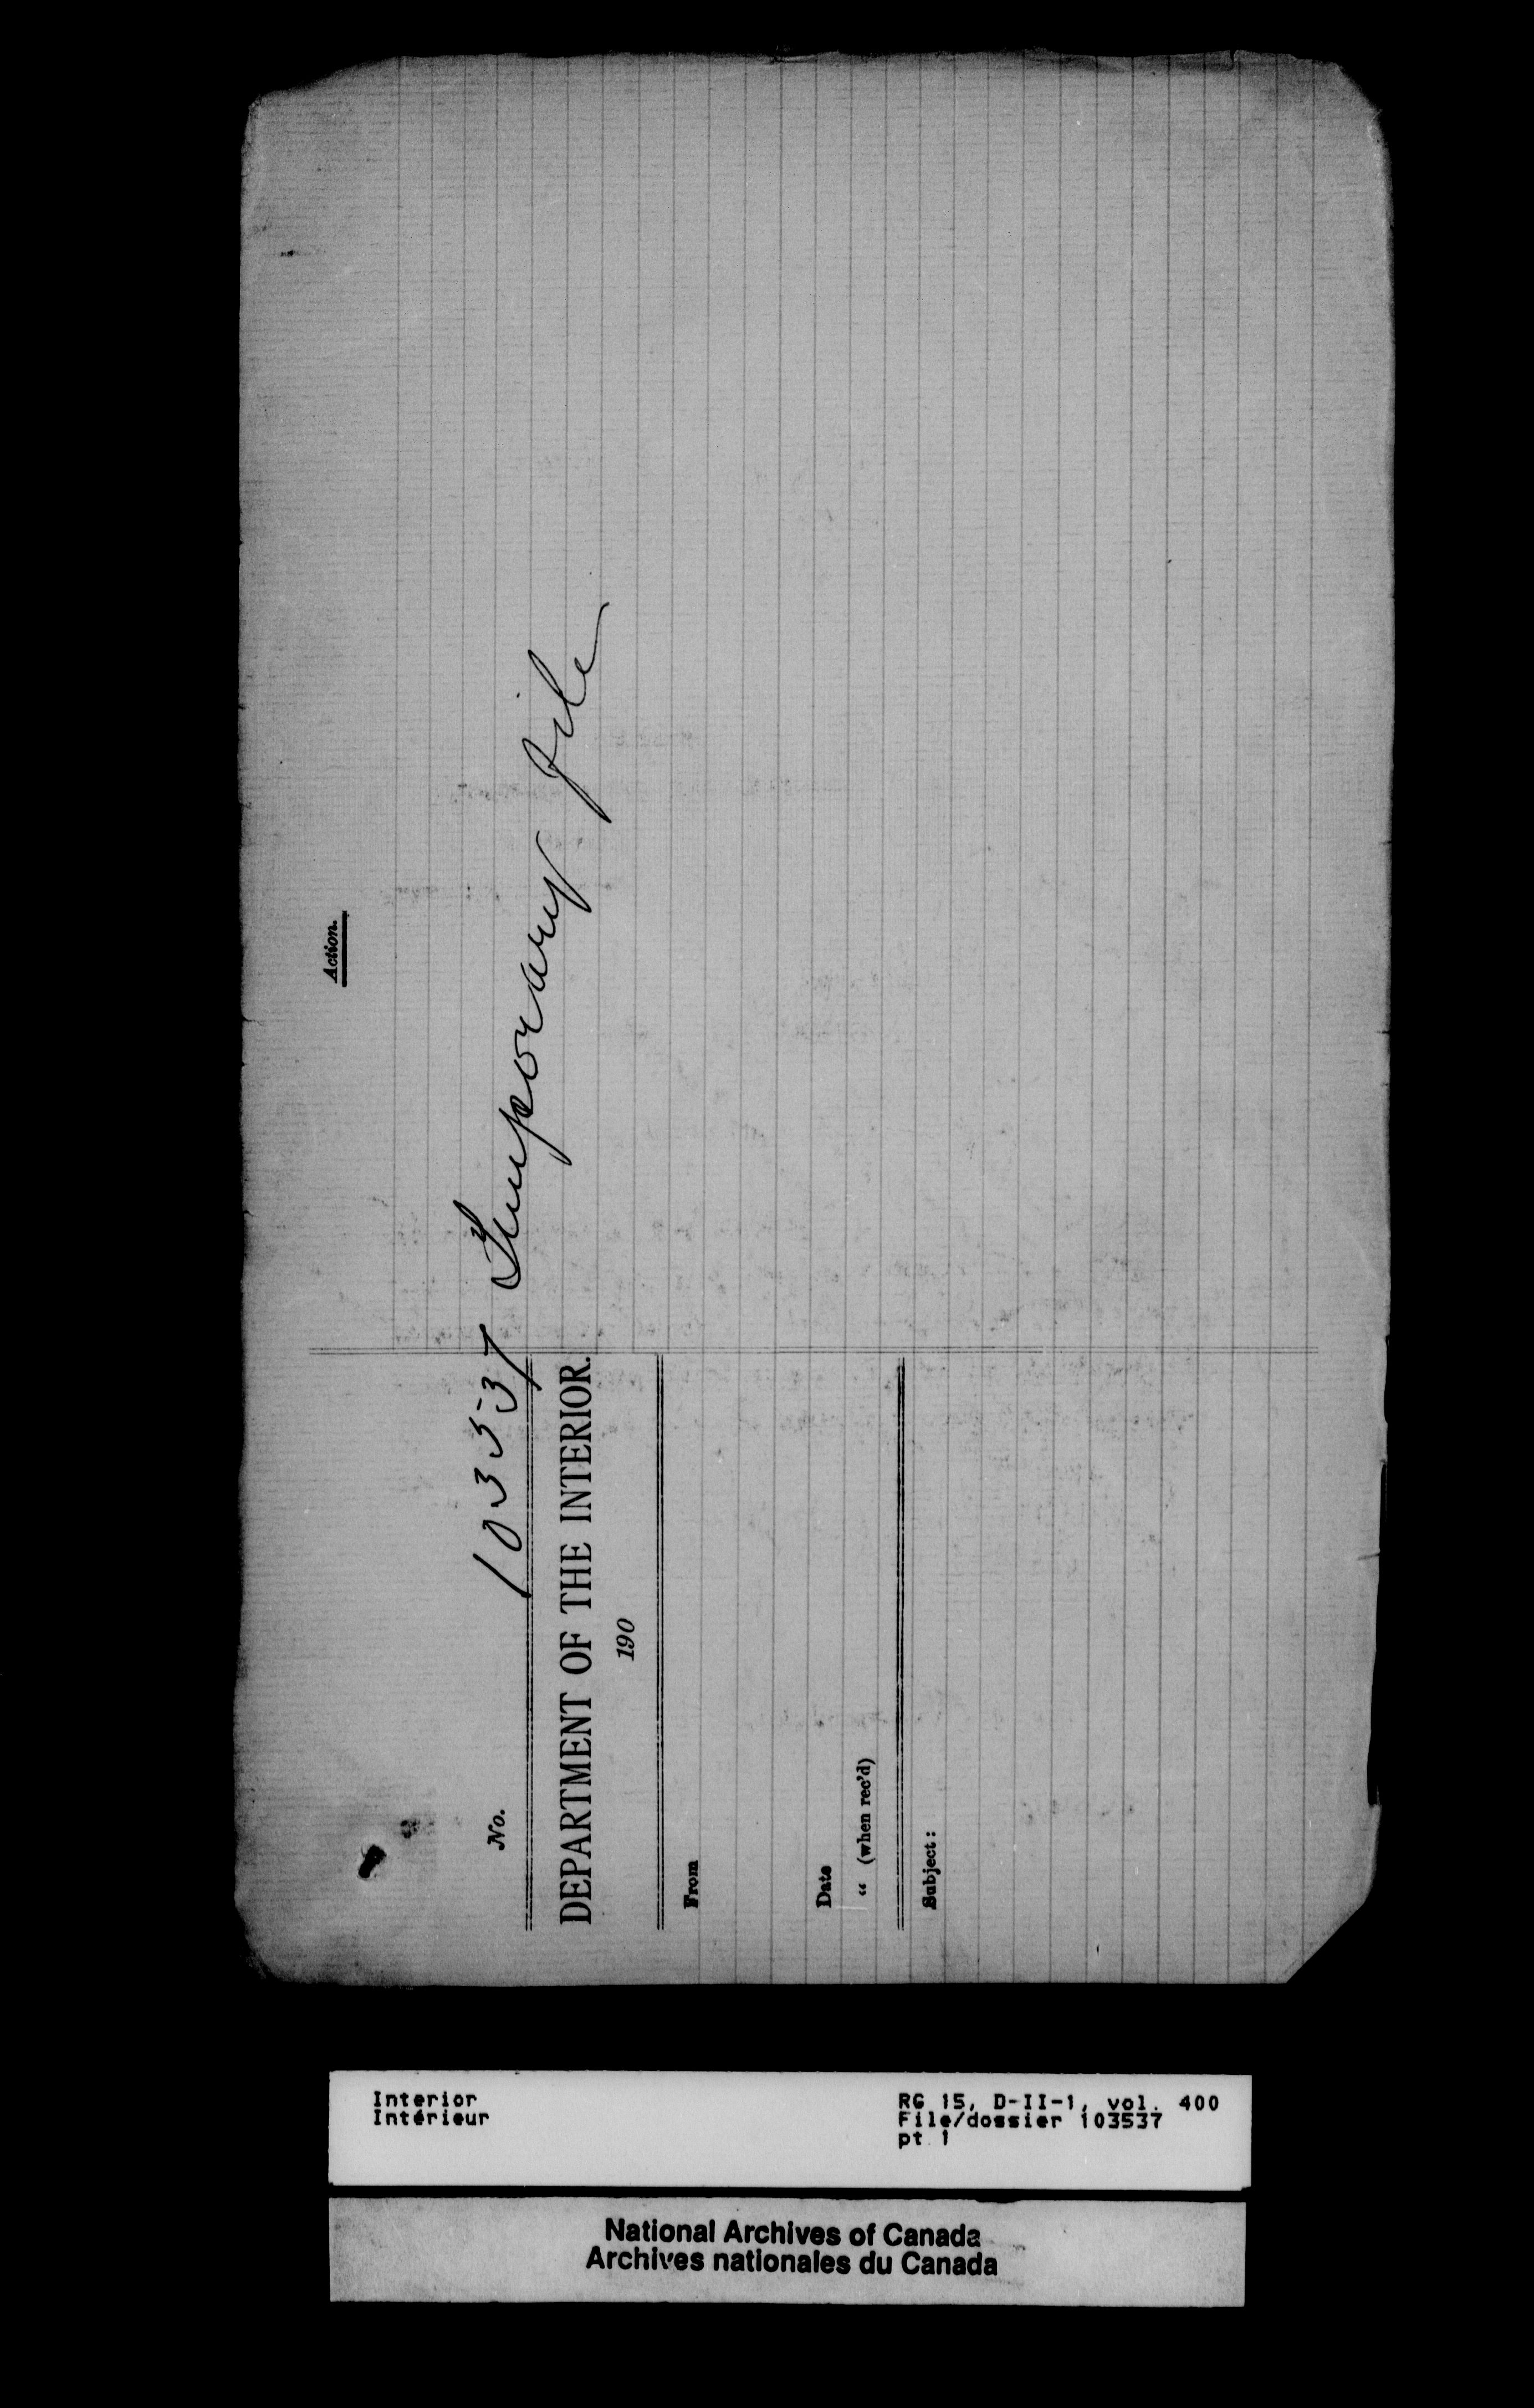 Action.
No. 103537 Temporary file
DEPARTMENT OF THE INTERIOR.
190
From
Date
" (when rec'd)
Subject:
Interior
Intérieur
RG 15, D-II-1, vol. 400
File/dossier 103537
pt 1
National Archives of Canada
Archives nationales du Canada